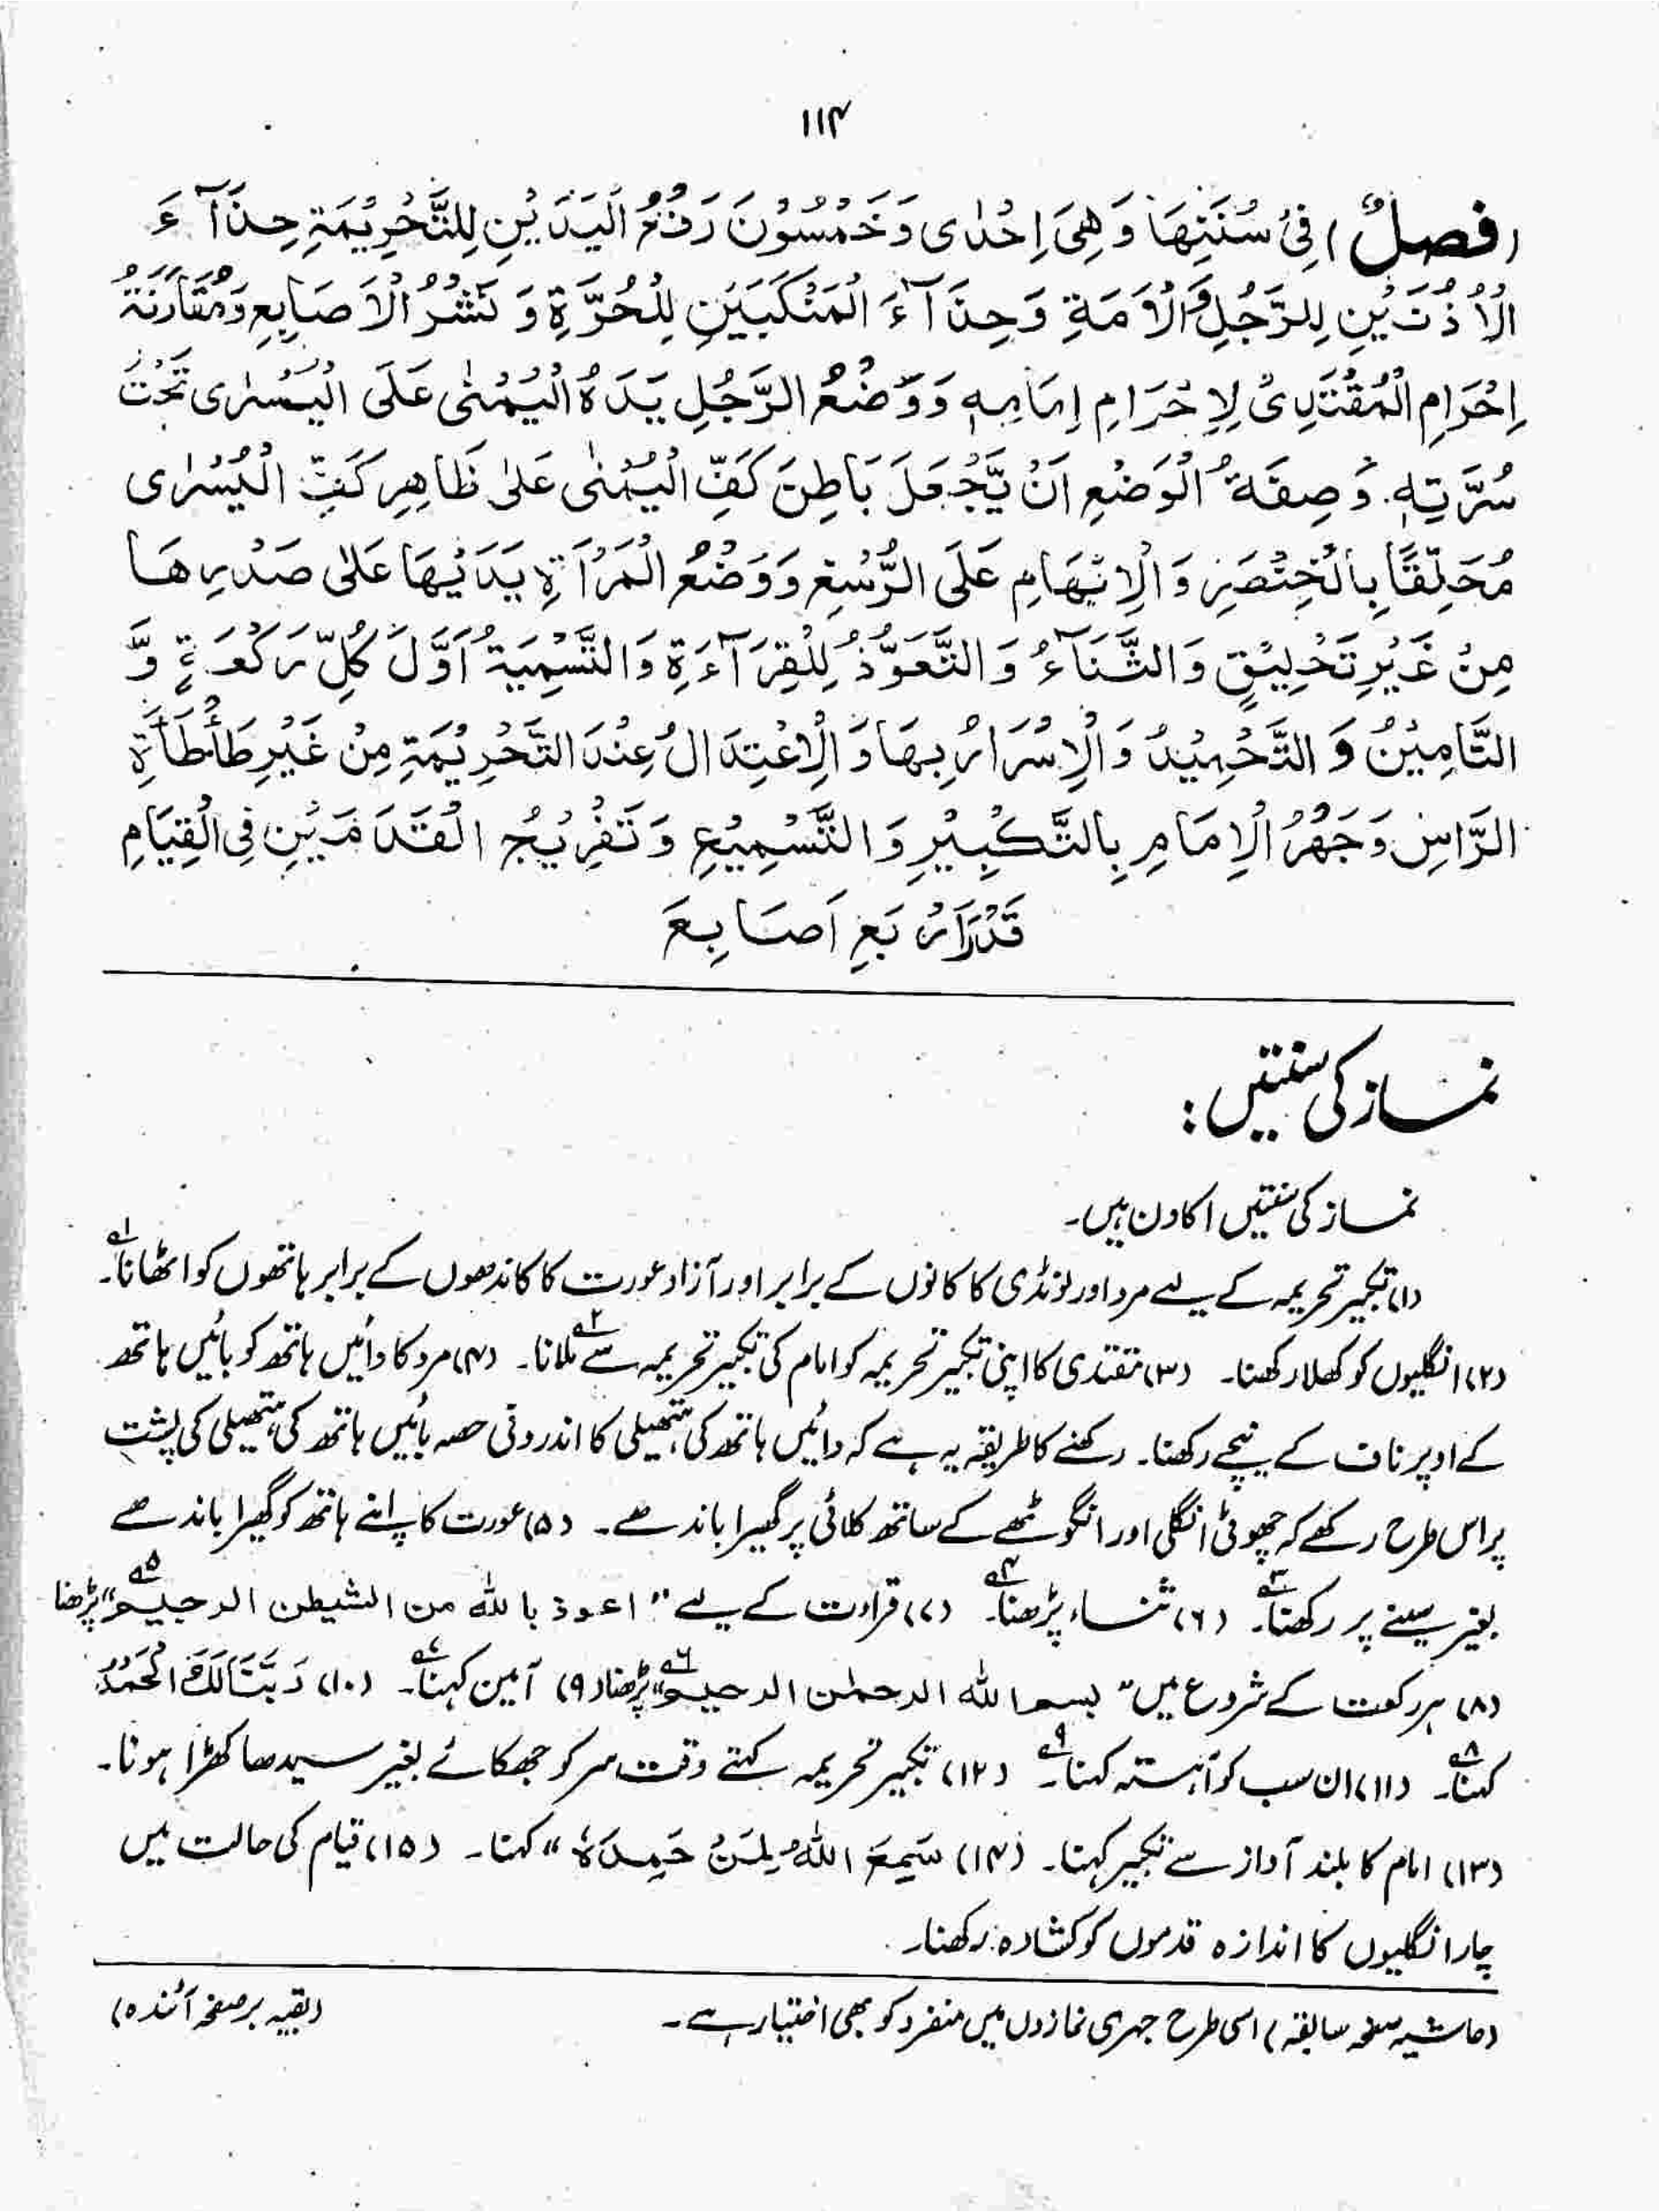 ۱۱۴
(فصلٌ) فِیْ سُنَنِهَا وَهِیَ اِحْدٰی وَخَمْسُوْنَ رَفْعُ الْیَدَیْنِ لِلتَّحْرِیْمَةِ حِذَآءَ
الْاُذُنَیْنِ لِلرَّجُلِ وَالْاَمَةِ وَحِذَآءَ الْمَنْکَبَیْنِ لِلْحُرَّةِ وَنَشْرُ الْاَصَابِعِ وَمُقَارَنَةُ
اِحْرَامِ الْمُقْتَدِیْ لِاِحْرَامِ اِمَامِهٖ وَوَضْعُ الرَّجُلِ یَدَهُ الْیُمْنٰی عَلَی الْیُسْرٰی تَحْتَ
سُرَّتِهٖ. وَصِفَةُ الْوَضْعِ اَنْ یَّجْعَلَ بَاطِنَ کَفِّ الْیُمْنٰی عَلٰی ظَاهِرِ کَفِّ الْیُسْرٰی
مُحَلِّقًا بِالْخِنْصَرِ وَالْاِبْهَامِ عَلَی الرُّسْغِ وَوَضْعُ الْمَرْاَةِ یَدَیْهَا عَلٰی صَدْرِهَا
مِنْ غَیْرِ تَحْلِیْقٍ وَالثَّنَآءُ وَالتَّعَوُّذُ لِلْقِرَآءَةِ وَالتَّسْمِیَةُ اَوَّلَ کُلِّ رَکْعَةٍ وَّ
التَّامِیْنُ وَالتَّحْمِیْدُ وَالْاِسْرَارُ بِهَا وَالْاِعْتِدَالُ عِنْدَ التَّحْرِیْمَةِ مِنْ غَیْرِ طَأْطَأَةِ
الرَّاسِ وَجَهْرُ الْاِمَامِ بِالتَّکْبِیْرِ وَالتَّسْمِیْعِ وَتَفْرِیْجُ الْقَدَمَیْنِ فِی الْقِیَامِ
قَدْرَ اَرْبَعِ اَصَابِعَ
نماز کی سنتیں:
نماز کی سنتیں اکاون ہیں۔
(۱) تکبیر تحریمہ کے لیے مرد اور لونڈی کا کانوں کے برابر اور آزاد عورت کا کاندھوں کے برابر ہاتھوں کو اٹھانا۱ـہ۔
(۲) انگلیوں کو کھلا رکھنا۔ (۳) مقتدی کا اپنی تکبیر تحریمہ کو امام کی تکبیر تحریمہ سے۲ـہ ملانا۔ (۴) مرد کا دائیں ہاتھ کو بائیں ہاتھ
کے اوپر ناف کے نیچے رکھنا۔ رکھنے کا طریقہ یہ ہے کہ دائیں ہاتھ کی ہتھیلی کا اندرونی حصہ بائیں ہاتھ کی ہتھیلی کی پشت
پر اس طرح رکھے کہ چھوٹی انگلی اور انگوٹھے کے ساتھ کلائی پر گھیرا باندھے۔ (۵) عورت کا اپنے ہاتھ کو گھیرا باندھے
بغیر سینے پر رکھنا۳ـہ۔ (۶) ثناء پڑھنا۴ـہ۔ (۷) قراءت کے لیے "اعوذ باللہ من الشیطن الرجیم۵ـہ" پڑھنا
(۸) ہر رکعت کے شروع میں "بسم اللہ الرحمٰن الرحیم۶ـہ" پڑھنا (۹) آمین کہنا۷ـہ۔ (۱۰) رَبَّنَا لَکَ الْحَمْدُ
کہنا۸ـہ۔ (۱۱) ان سب کو آہستہ کہنا۹ـہ۔ (۱۲) تکبیر تحریمہ کہتے وقت سر کو جھکائے بغیر سیدھا کھڑا ہونا۔
(۱۳) امام کا بلند آواز سے تکبیر کہنا۔ (۱۴) سَمِعَ اللہُ لِمَنْ حَمِدَہٗ" کہنا۔ (۱۵) قیام کی حالت میں
چار انگلیوں کا اندازہ قدموں کو کشادہ رکھنا۔
(حاشیہ صفحہ سابقہ) اسی طرح جہری نمازوں میں منفرد کو بھی اختیار ہے۔ (بقیہ بر صفحہ آئندہ)